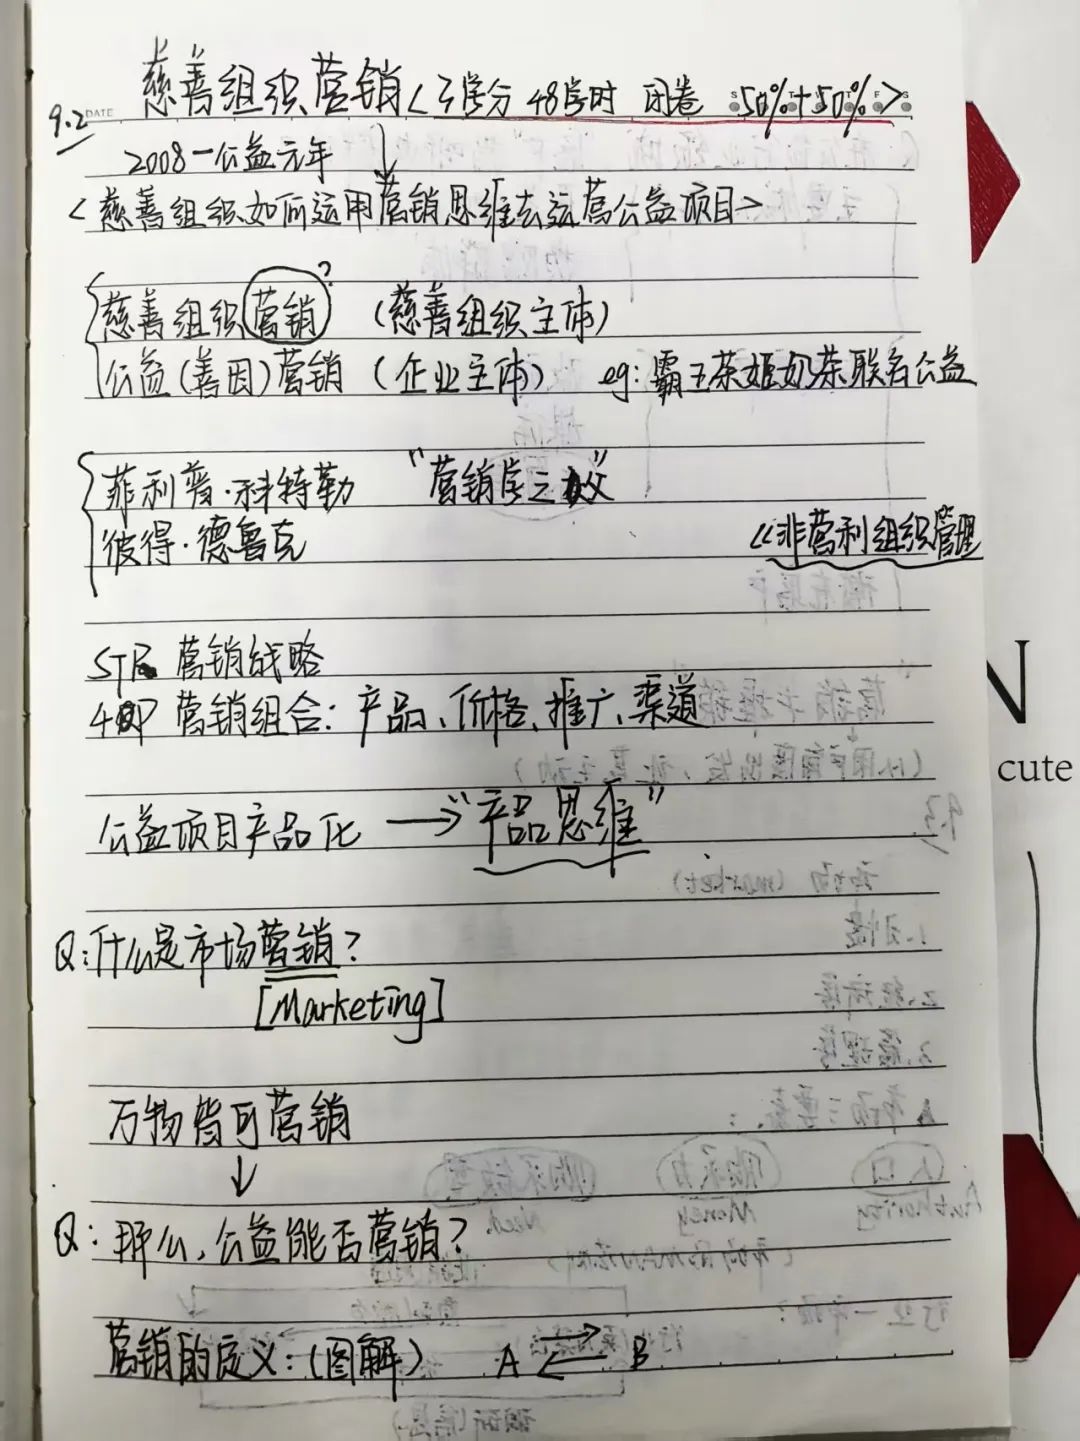 慈善组织营销<3学分 48学时 闭卷 50%+50%>
9.2 DATE
2008—公益元年
<慈善组织如何运用营销思维去运营公益项目>
慈善组织营销? (慈善组织主体)
公益(善因)营销 (企业主体) eg:霸王茶姬奶茶联名公益
菲利普·科特勒 "营销学之父"
彼得·德鲁克 《非营利组织管理
营销战略
4P 营销组合:产品、价格、推广、渠道
公益项目产品化 →"产品思维"
Q:什么是市场营销?
[Marketing]
万物皆可营销
↓
Q:那么,公益能否营销?
营销的定义:(图解) A ⇄ B
N
cute